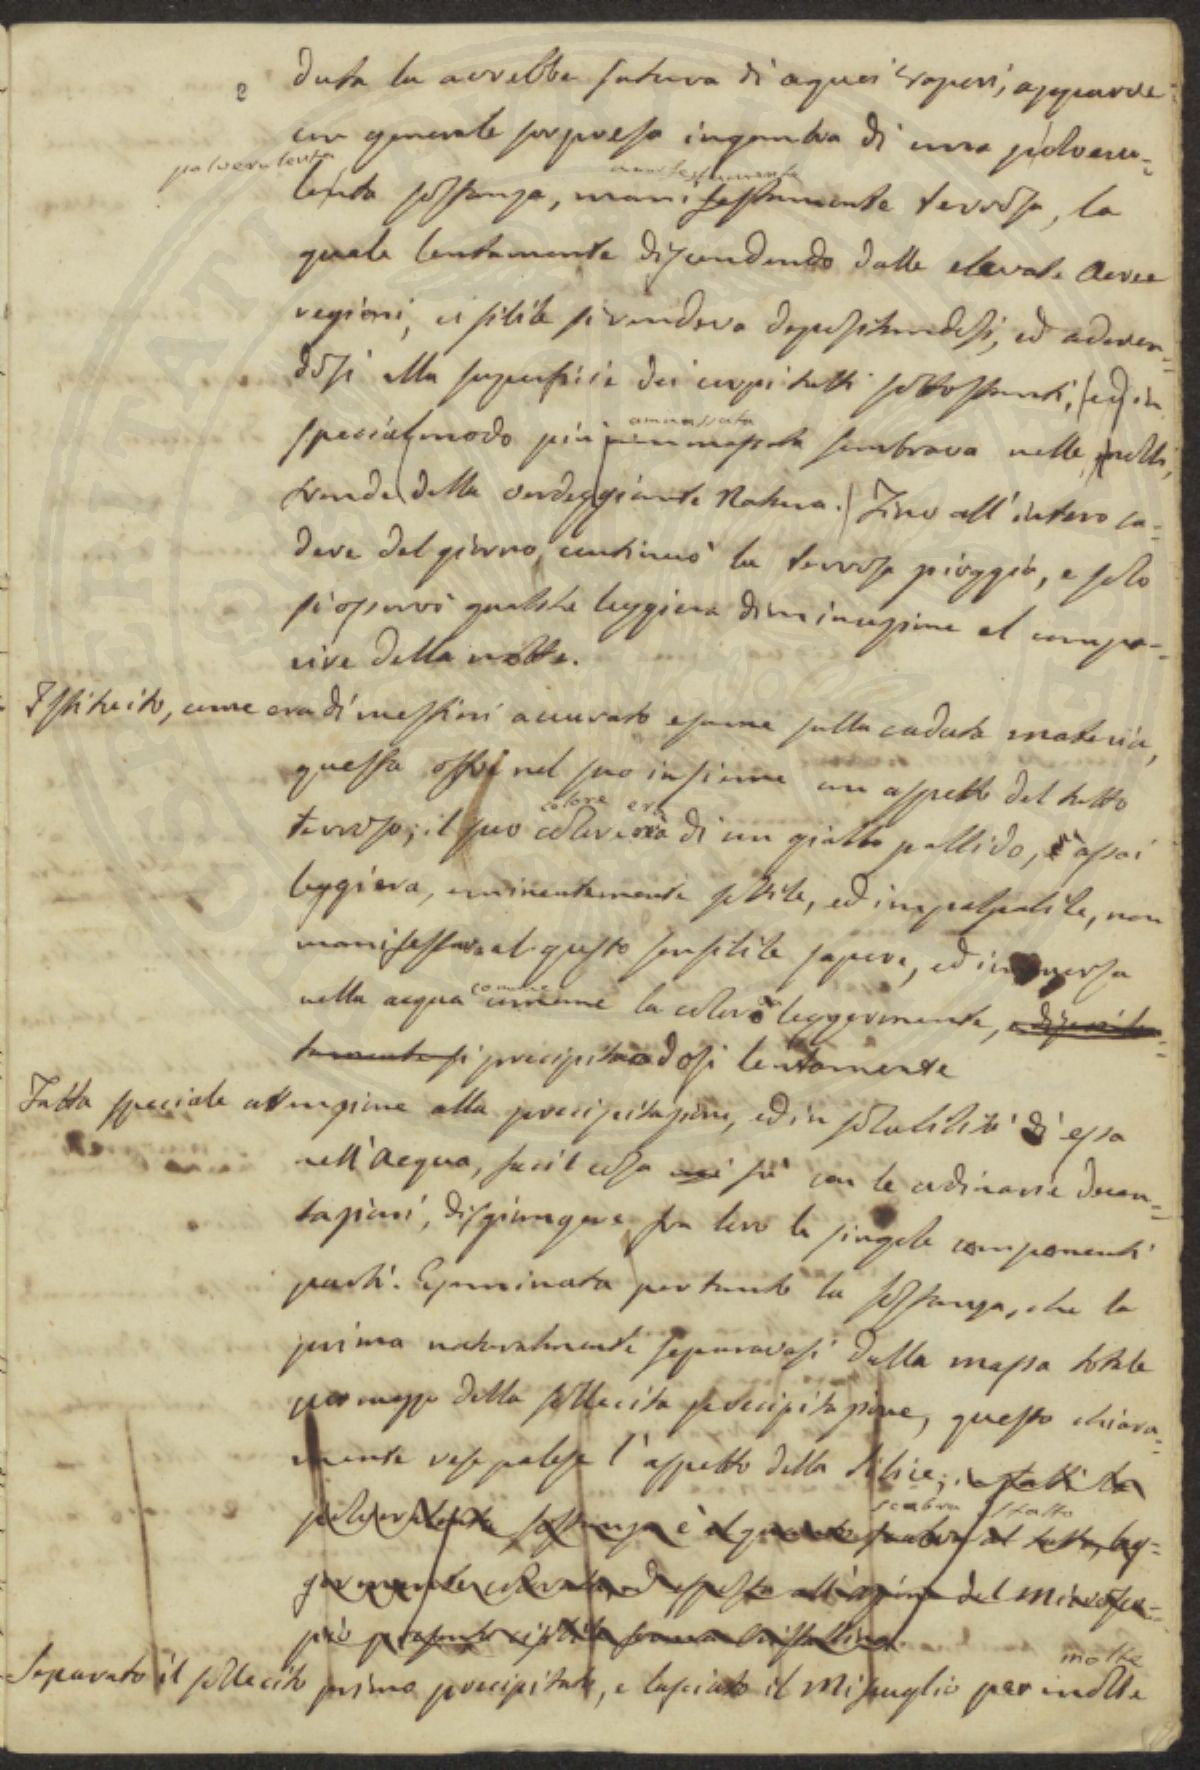 2
duta la avrebbe satura di aquei vapori, apparve
con generale sorpresa ingombra di una polveru=
polverulenta
manifestamente
lenta sostanza, manifestamente terrosa, la
quale lentamente discendendo dalle elevate aeree
regioni, visibile si rendeva depositandosi, ed aderen=
dosi alla superficie dei corpi tutti sottostanti, (ed) in
ammassata
special modo più ammassata sembrava nelle molli
fronde della verdeggiante Natura. Fino all'intero ca=
dere del giorno continuò la terrosa pioggia, e solo
si osservò qualche leggiera diminuzione al compa=
rire della notte.
Istituito, come era di mestieri accurato esame sulla caduta materia,
questa offrì nel suo insieme un aspetto del tutto
colore era
terroso; il suo colore era di un giallo pallido, assai
leggiera, eminentemente sottile, ed impalpabile, non
manifestava al gusto sensibile sapore, ed immersa
comune
nella acqua comune la colorò leggermente,
si precipitandosi lentamente
Fatta speciale attenzione alla precipitazione, ed in solubilità di essa
nell'Acqua, facil cosa fù con le ordinarie decan=
tazioni, disgiungere fra loro le singole componenti
parti. Esaminata pertanto la sostanza, che la
prima naturalmente separavasi dalla massa totale
per mezzo della sollecita precipitazione, questo chiara=
mente rese palese l'aspetto della Silice; infatti la
sembra statto
polverulenta sostanza è alquanto al tatto, leg=
germente colorata, ed esposta all'azione del Microsco=
pio presenta visibile forma cristallina
molte
Separato il sollecito primo precipitato, e lasciato il Miscuglio per molte